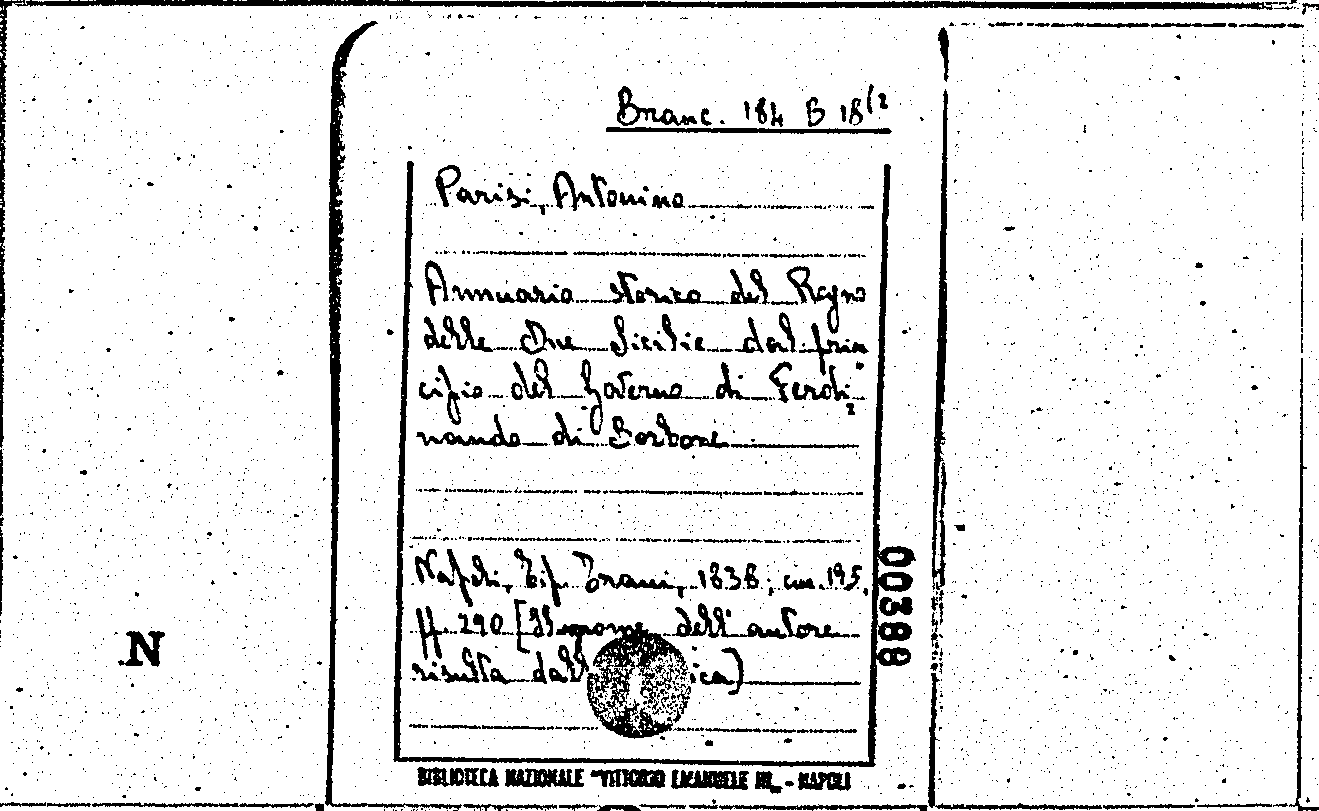 Branc. 184 B 18(2
Parisi, Antonino
Annuario storico del Regno
delle Due Sicilie dal prin
cipio del Governo di Ferdi,
nando di Borbone
Napoli, Tip. Trani, 1838, cm. 19,5,
pp. 290 [Il nome dell'autore
risulta dall ica)
00388
N
BIBLIOTECA NAZIONALE "VITTORIO EMANUELE III„ - NAPOLI